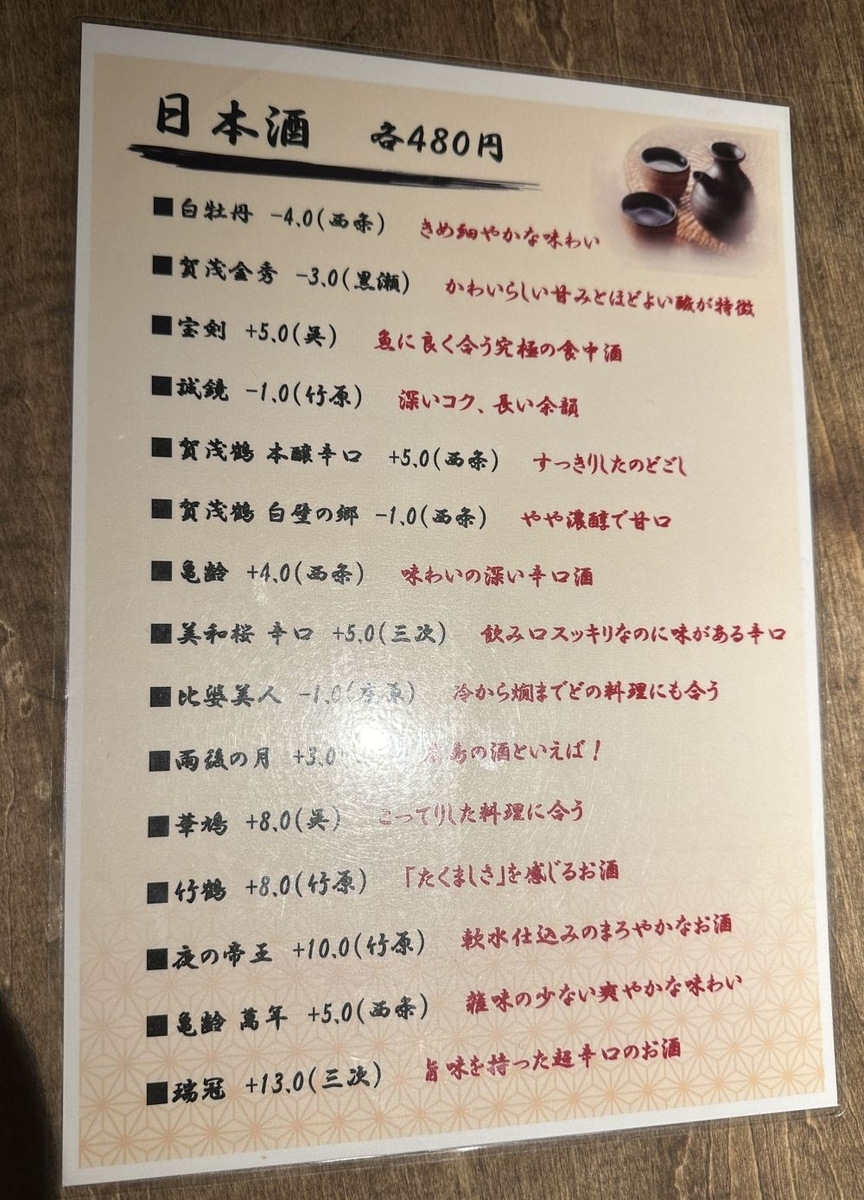 日本酒 各480円
■白牡丹 -4.0(西条) きめ細やかな味わい
■賀茂金秀 -3.0(黒瀬) かわいらしい甘みとほどよい酸が特徴
■宝剣 +5.0(呉) 魚に良く合う究極の食中酒
■誠鏡 -1.0(竹原) 深いコク、長い余韻
■賀茂鶴 本醸辛口 +5.0(西条) すっきりしたのどごし
■賀茂鶴 白壁の郷 -1.0(西条) やや濃醇で甘口
■亀齢 +4.0(西条) 味わいの深い辛口酒
■美和桜 辛口 +5.0(三次) 飲み口スッキリなのに味がある辛口
■比婆美人 -1.0(庄原) 冷から燗までどの料理にも合う
■雨後の月 +3.0 島の酒といえば!
■華鳩 +8.0(呉) こってりした料理に合う
■竹鶴 +8.0(竹原) 「たくましさ」を感じるお酒
■夜の帝王 +10.0(竹原) 軟水仕込みのまろやかなお酒
■亀齢 萬年 +5.0(西条) 雑味の少ない爽やかな味わい
■瑞冠 +13.0(三次) 旨味を持った超辛口のお酒